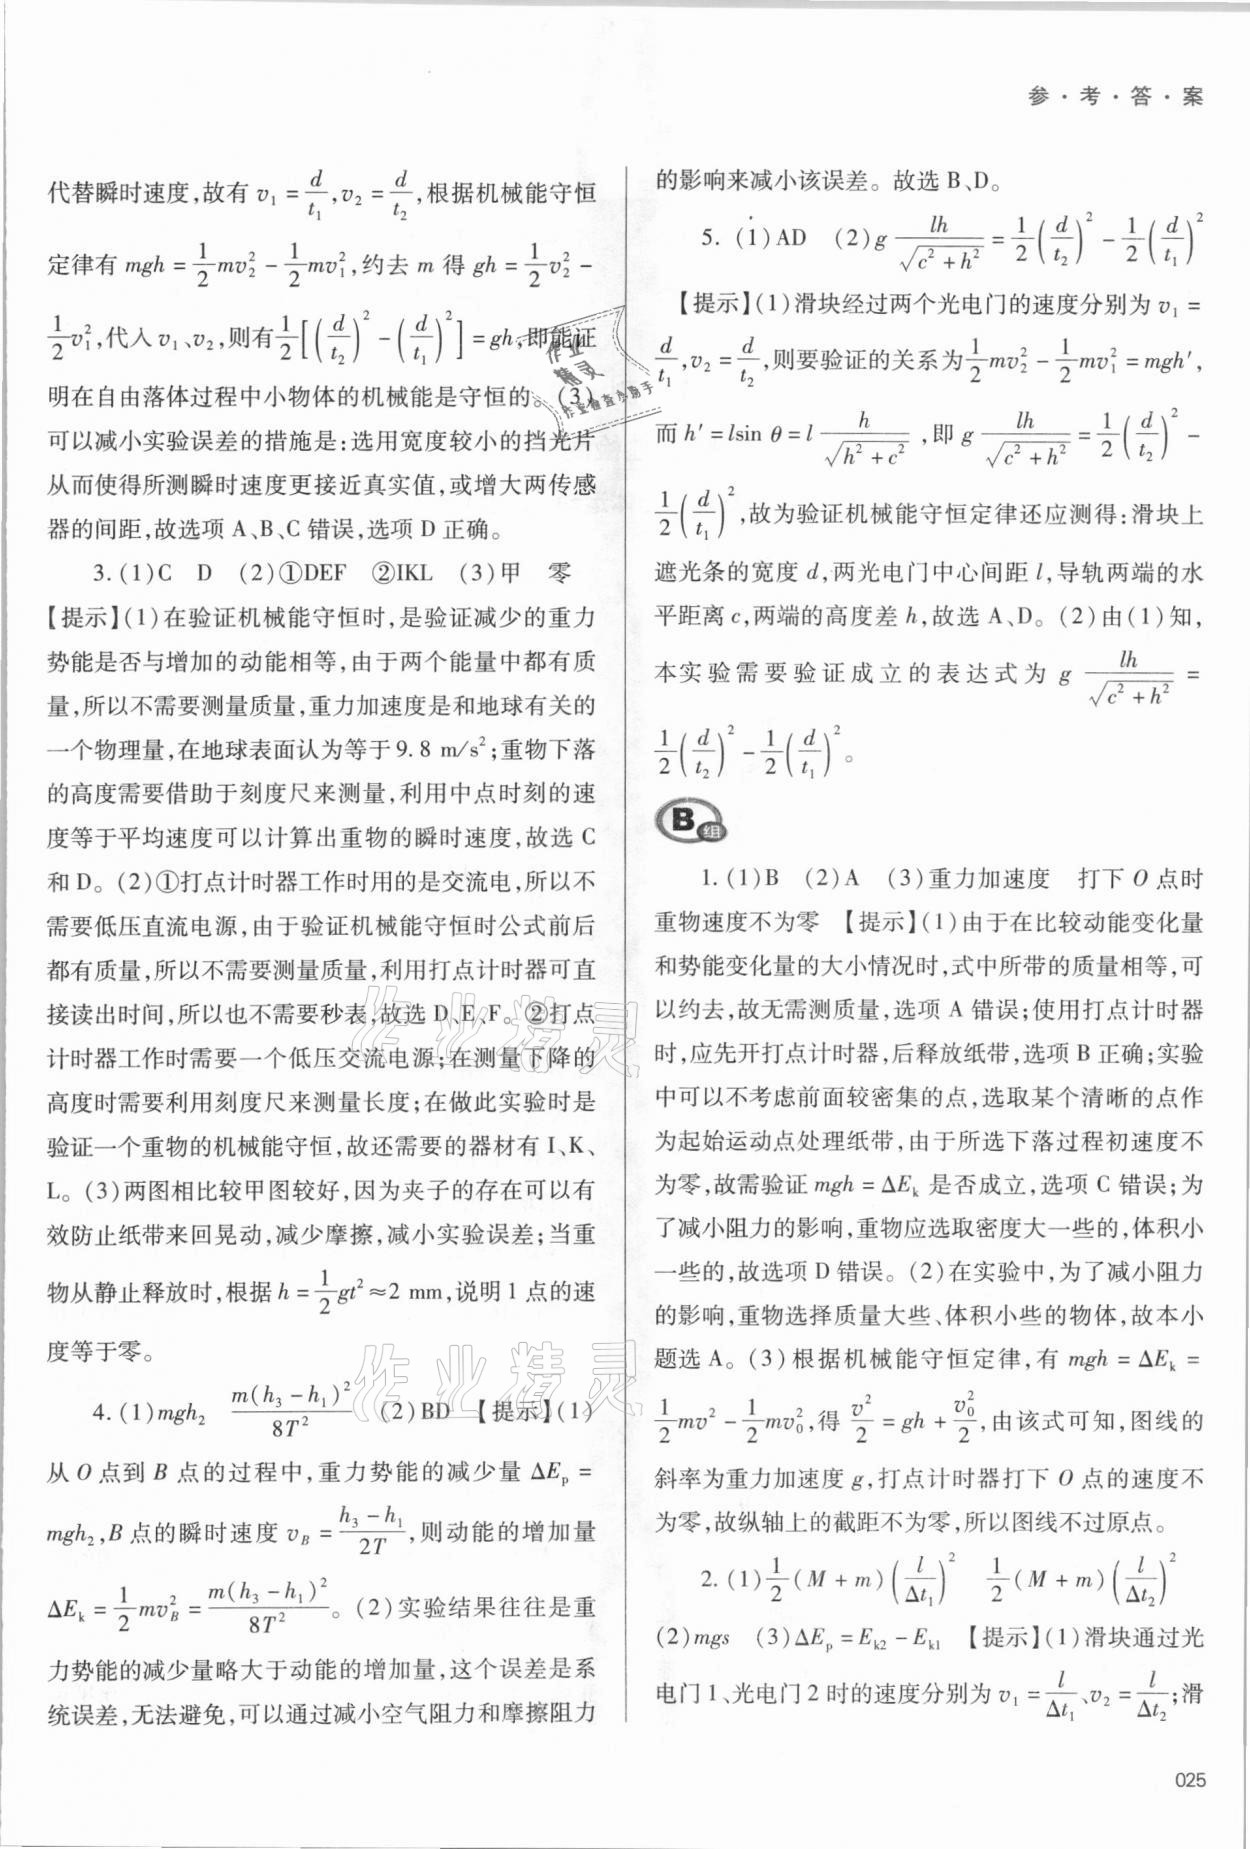 参·考·答·案
代替瞬时速度,故有 v₁ = d/t₁, v₂ = d/t₂,根据机械能守恒
定律有 mgh = 1/2 mv₂² − 1/2 mv₁²,约去 m 得 gh = 1/2 v₂² −
1/2 v₁²,代入 v₁、v₂,则有 1/2[(d/t₂)² − (d/t₁)²] = gh,即能证
明在自由落体过程中小物体的机械能是守恒的。(3)
可以减小实验误差的措施是:选用宽度较小的挡光片
从而使得所测瞬时速度更接近真实值,或增大两传感
器的间距,故选项 A、B、C 错误,选项 D 正确。
3. (1)C D (2)①DEF ②IKL (3)甲 零
【提示】(1)在验证机械能守恒时,是验证减少的重力
势能是否与增加的动能相等,由于两个能量中都有质
量,所以不需要测量质量,重力加速度是和地球有关的
一个物理量,在地球表面认为等于 9.8 m/s²;重物下落
的高度需要借助于刻度尺来测量,利用中点时刻的速
度等于平均速度可以计算出重物的瞬时速度,故选 C
和 D。(2)①打点计时器工作时用的是交流电,所以不
需要低压直流电源,由于验证机械能守恒时公式前后
都有质量,所以不需要测量质量,利用打点计时器可直
接读出时间,所以也不需要秒表,故选 D、E、F。②打点
计时器工作时需要一个低压交流电源;在测量下降的
高度时需要利用刻度尺来测量长度;在做此实验时是
验证一个重物的机械能守恒,故还需要的器材有 I、K、
L。(3)两图相比较甲图较好,因为夹子的存在可以有
效防止纸带来回晃动,减少摩擦,减小实验误差;当重
物从静止释放时,根据 h = 1/2 gt² ≈ 2 mm,说明 1 点的速
度等于零。
4. (1)mgh₂ m(h₃ − h₁)²/8T² (2)BD 【提示】(1)
从 O 点到 B 点的过程中,重力势能的减少量 ΔEₚ =
mgh₂,B 点的瞬时速度 v_B = (h₃ − h₁)/2T,则动能的增加量
ΔEₖ = 1/2 mv_B² = m(h₃ − h₁)²/8T²。(2)实验结果往往是重
力势能的减少量略大于动能的增加量,这个误差是系
统误差,无法避免,可以通过减小空气阻力和摩擦阻力
的影响来减小该误差。故选 B、D。
5. (1)AD (2)g lh/√(c² + h²) = 1/2(d/t₂)² − 1/2(d/t₁)²
【提示】(1)滑块经过两个光电门的速度分别为 v₁ =
d/t₁, v₂ = d/t₂,则要验证的关系为 1/2 mv₂² − 1/2 mv₁² = mgh′,
而 h′ = lsin θ = l h/√(h² + c²),即 g lh/√(c² + h²) = 1/2(d/t₂)² −
1/2(d/t₁)²,故为验证机械能守恒定律还应测得:滑块上
遮光条的宽度 d,两光电门中心间距 l,导轨两端的水
平距离 c,两端的高度差 h,故选 A、D。(2)由(1)知,
本实验需要验证成立的表达式为 g lh/√(c² + h²) =
1/2(d/t₂)² − 1/2(d/t₁)²。
B组
1. (1)B (2)A (3)重力加速度 打下 O 点时
重物速度不为零 【提示】(1)由于在比较动能变化量
和势能变化量的大小情况时,式中所带的质量相等,可
以约去,故无需测质量,选项 A 错误;使用打点计时器
时,应先开打点计时器,后释放纸带,选项 B 正确;实验
中可以不考虑前面较密集的点,选取某个清晰的点作
为起始运动点处理纸带,由于所选下落过程初速度不
为零,故需验证 mgh = ΔEₖ 是否成立,选项 C 错误;为
了减小阻力的影响,重物应选取密度大一些的,体积小
一些的,故选项 D 错误。(2)在实验中,为了减小阻力
的影响,重物选择质量大些、体积小些的物体,故本小
题选 A。(3)根据机械能守恒定律,有 mgh = ΔEₖ =
1/2 mv² − 1/2 mv₀²,得 v²/2 = gh + v₀²/2,由该式可知,图线的
斜率为重力加速度 g,打点计时器打下 O 点的速度不
为零,故纵轴上的截距不为零,所以图线不过原点。
2. (1)1/2(M + m)(l/Δt₁)² 1/2(M + m)(l/Δt₂)²
(2)mgs (3)ΔEₚ = Eₖ₂ − Eₖ₁ 【提示】(1)滑块通过光
电门 1、光电门 2 时的速度分别为 v₁ = l/Δt₁、v₂ = l/Δt₂;滑
025
作业精灵
作业检查小助手
作业精灵
作业精灵